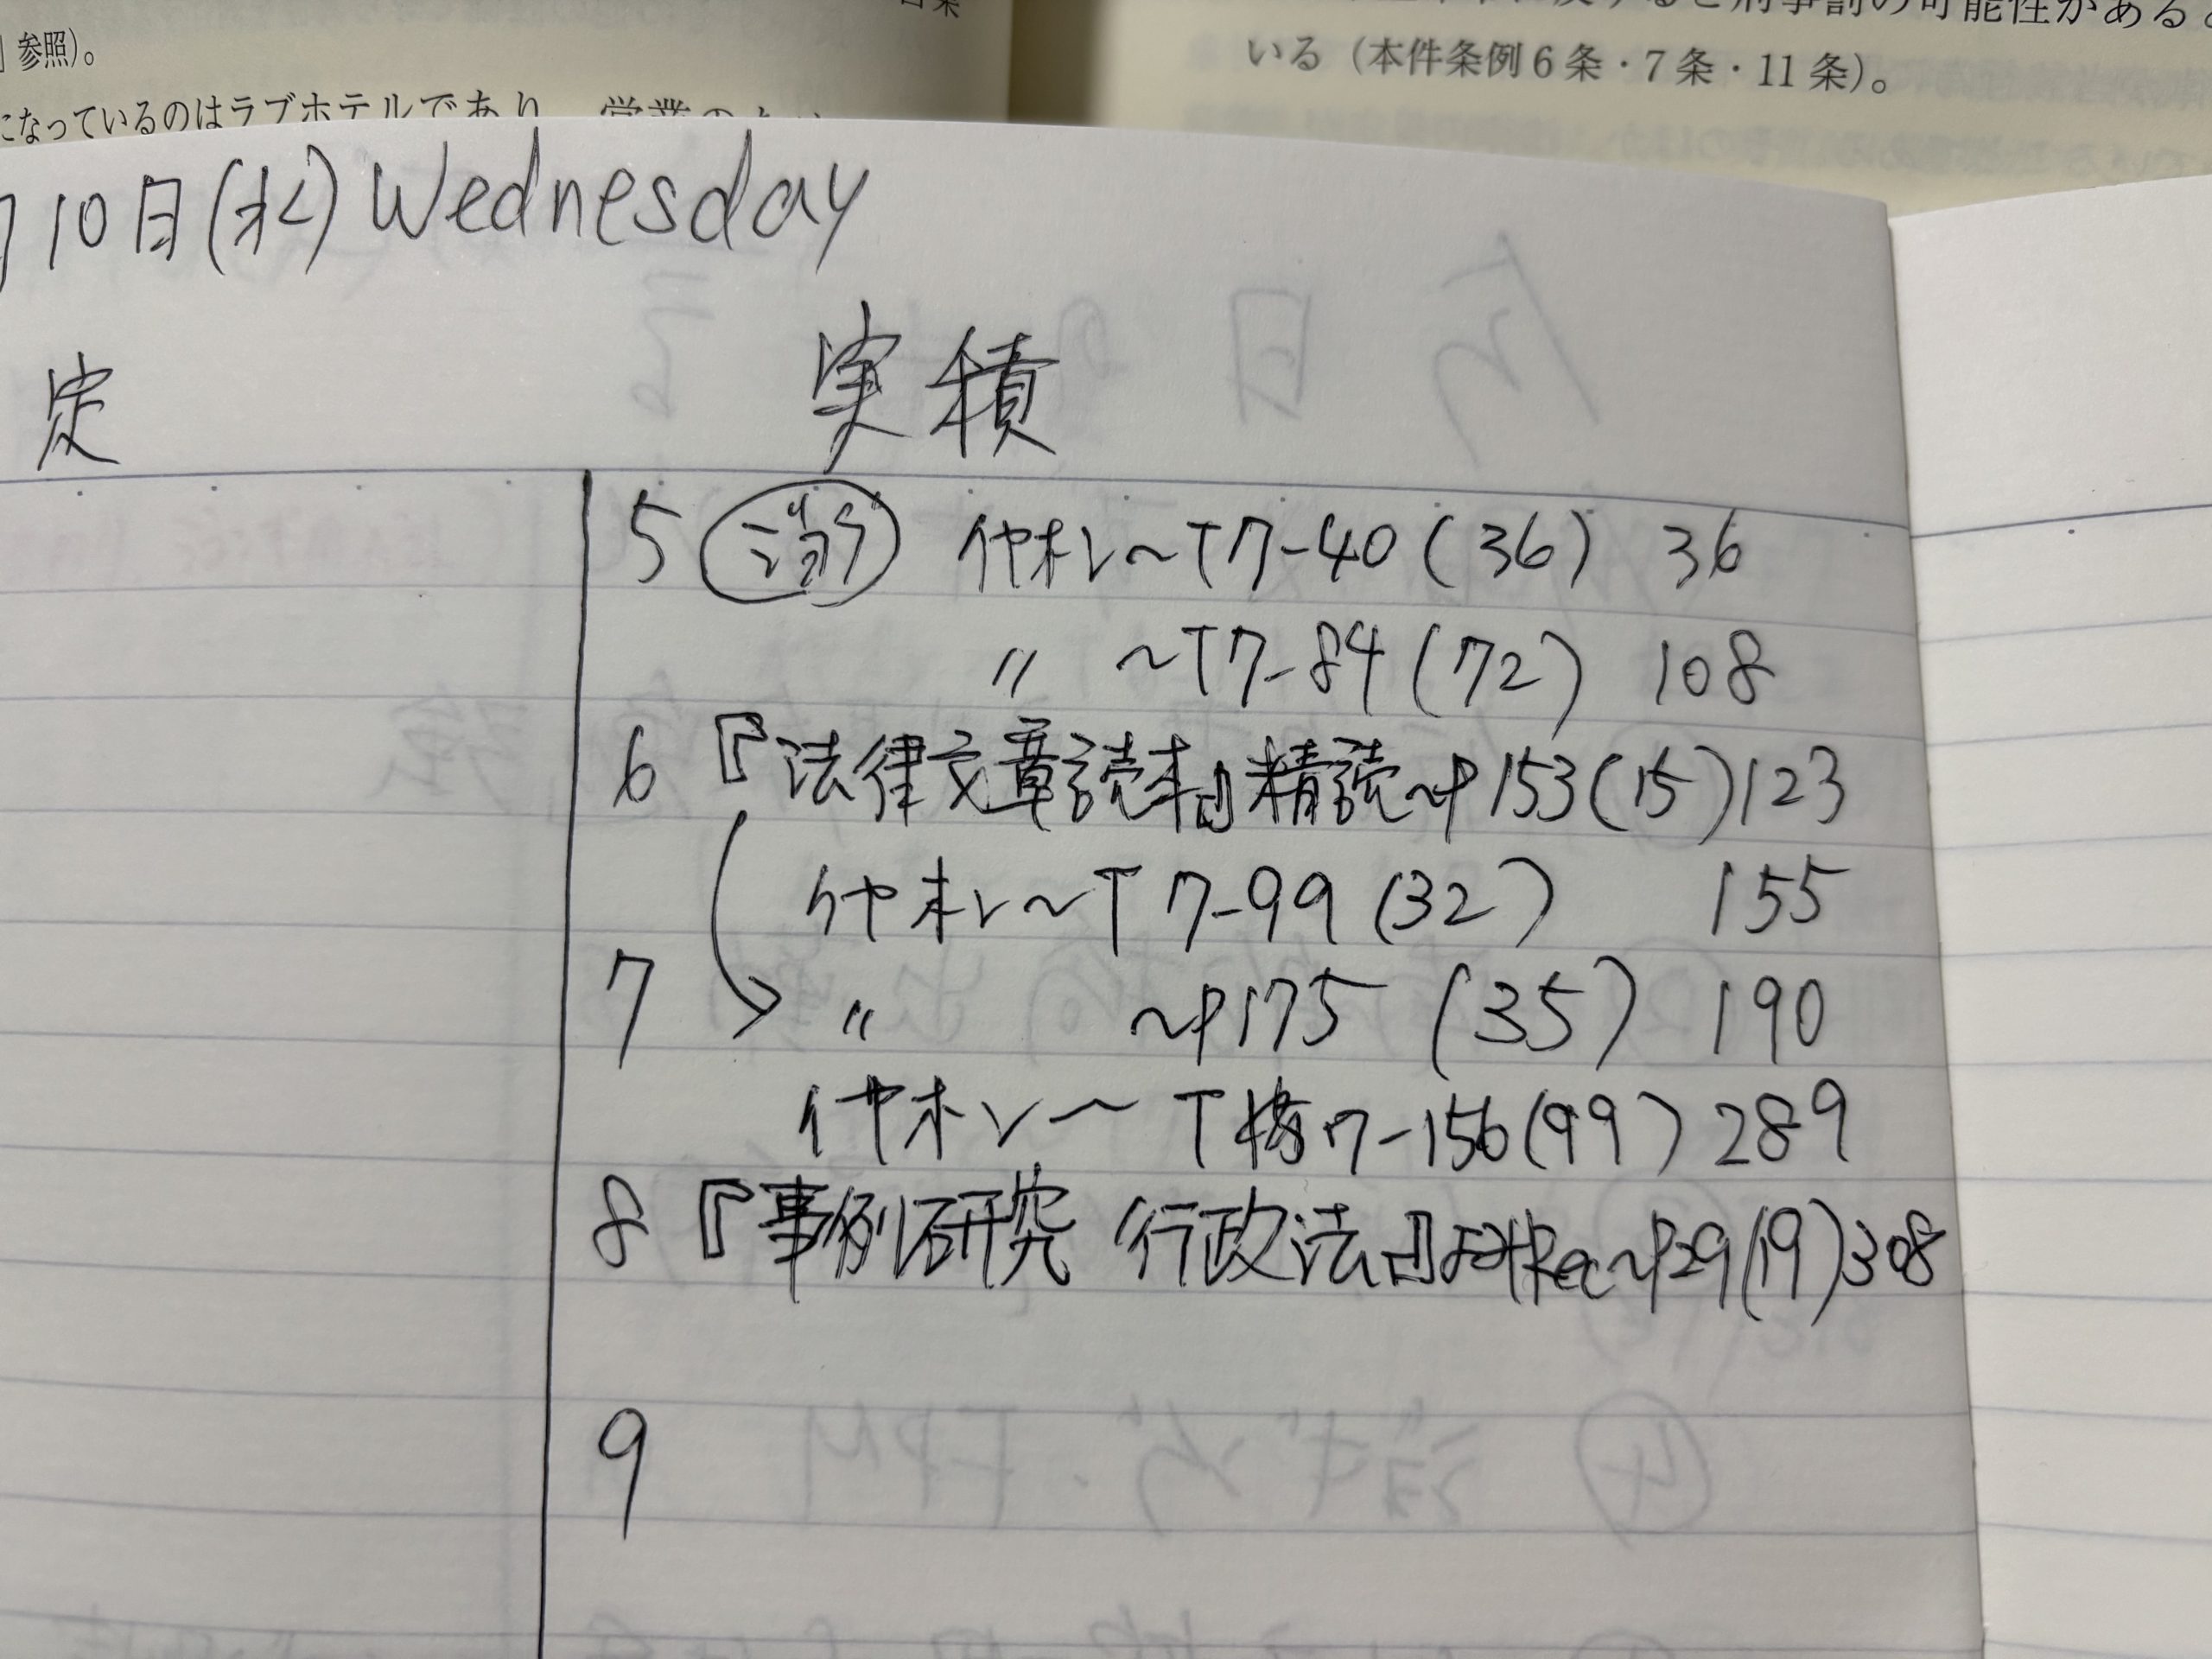 参照)。
になっているのはラブホテルであり、営業の
の可能性がある
いる(本件条例6条・7条・11条)。
10日(水) Wednesday
定
実積
5 イヤホン〜T7-40(36) 36
〃 〜T7-84(72) 108
6 『法律文章読本』精読〜P153(15)123
イヤホン〜T7-99(32) 155
7 〃 〜P175(35) 190
イヤホン〜T7-156(99) 289
8 『事例研究 行政法』Rec〜P29(19)308
9